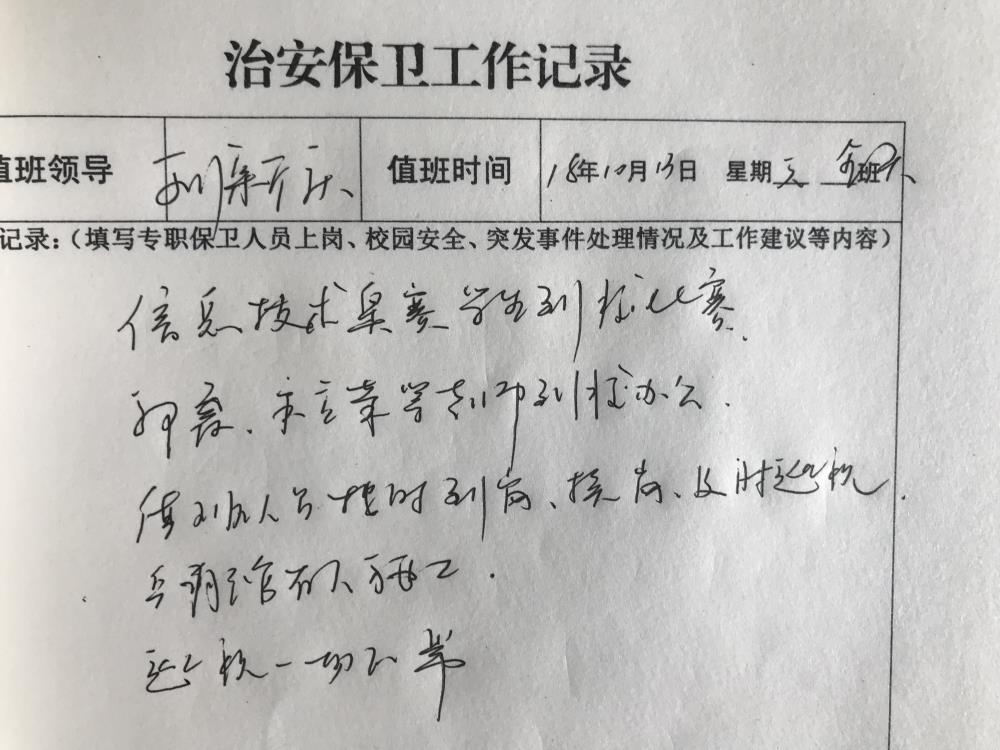 治安保卫工作记录
值班领导 值班时间 18年10月13日 星期 班
记录:(填写专职保卫人员上岗、校园安全、突发事件处理情况及工作建议等内容)
信息技术奥赛学生到校比赛.
等老师到校办公.
保人员按时到岗、接岗、及时巡视.
有人施工.
巡视一切正常